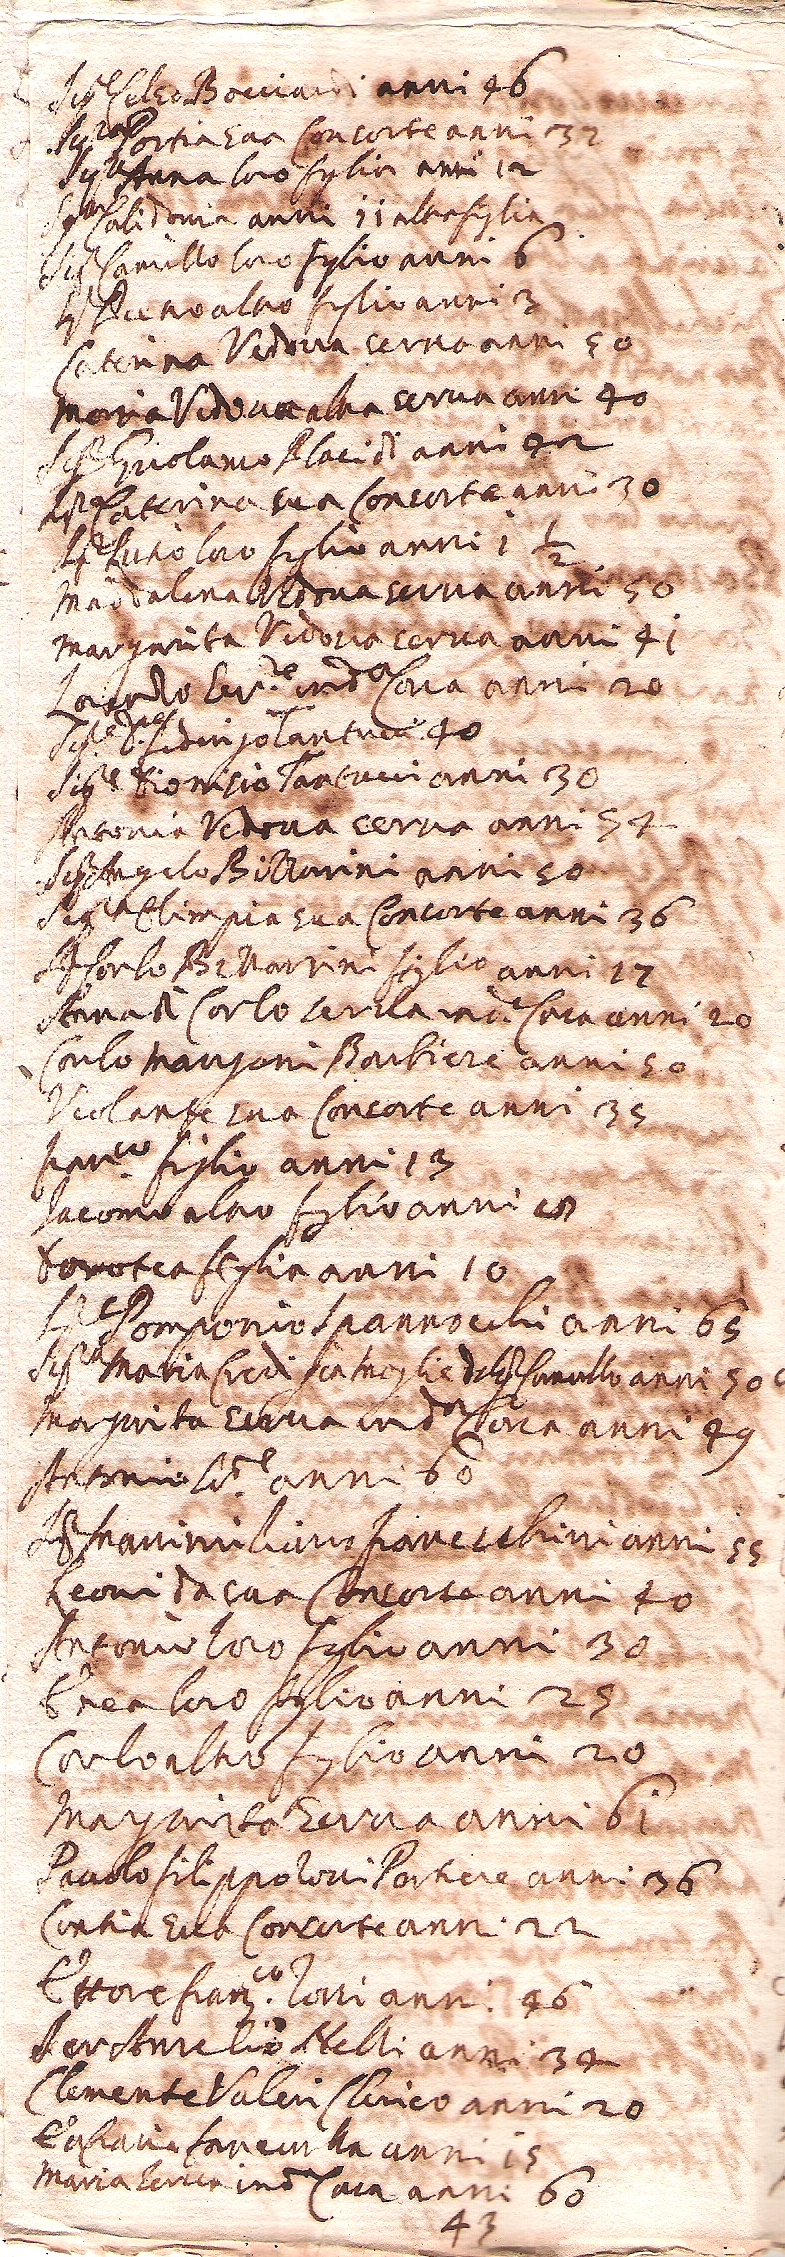 Sigre Celso Bocciardi anni 46
Sigra Portia sua Consorte anni 32
Sigra Anna loro figlia anni 12
Sigra Calidonia anni 11 altra figlia
Sigre Camillo loro figlio anni 6
Sigre Pietro altro figlio anni 3
Caterina Vedova serva anni 50
Maria Vedova altra serva anni 40
Sigre Girolamo Placidi anni 42
Sigra Caterina sua Consorte anni 30
Sigre loro figlio anni 1 1/2
Maddalena Vedova serva anni 50
Margarita Vedova serva anni 41
Lorenzo Serre in da Casa anni 20
Sigre Tantucci 40
Sigre Dionisio Tantucci anni 30
Antonia Vedova serva anni 54
Sigre Angelo Billarini anni 50
Sigra Olimpia sua Consorte anni 36
Carlo figlio anni 17
Anna di Carlo serva in da Casa anni 20
Carlo Mangoni Barbiere anni 50
Violante sua Consorte anni 35
Franco figlio anni 13
Iacomo altro figlio anni
Dorotea figlia anni 10
Sigre Pomponio Spannocchi anni 65
Sigra Maria moglie del Sigre Camullo anni 50
Margarita serva in da Casa anni 49
Antonio anni 60
Sigre Massimiliano Franceschini anni 55
Leonida sua Consorte anni 40
Antonio loro figlio anni 30
Enea loro figlio anni 25
Carlo altro figlio anni 20
Margarita Serva anni 61
Pauolo Filippo Portiere anni 36
Cintia sua Consorte anni 22
Ettore Franco anni 46
Ser Aurelio Nelli anni 34
Clemente Valeri Clerico anni 20
anni 15
Maria serva in da Casa anni 60
43